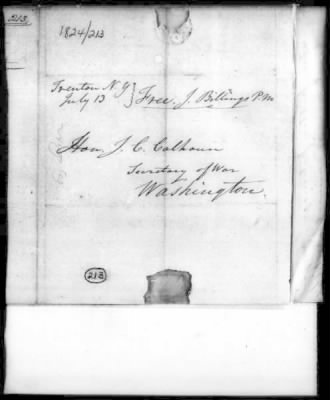 213
1824/213
Trenton N.Y. } Free. J. Billings P.M
July 13
Hon. J. C. Calhoun
Secretary of War
Washington.
213